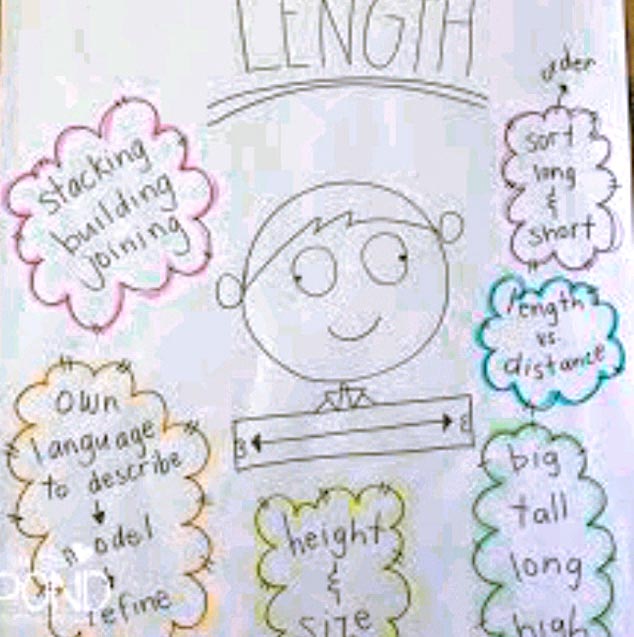 LENGTH
order
stacking
building
joining
sort
long
&
short
length
vs.
distance
own
language
to describe
model
refine
height
&
size
big
tall
long
high
POND